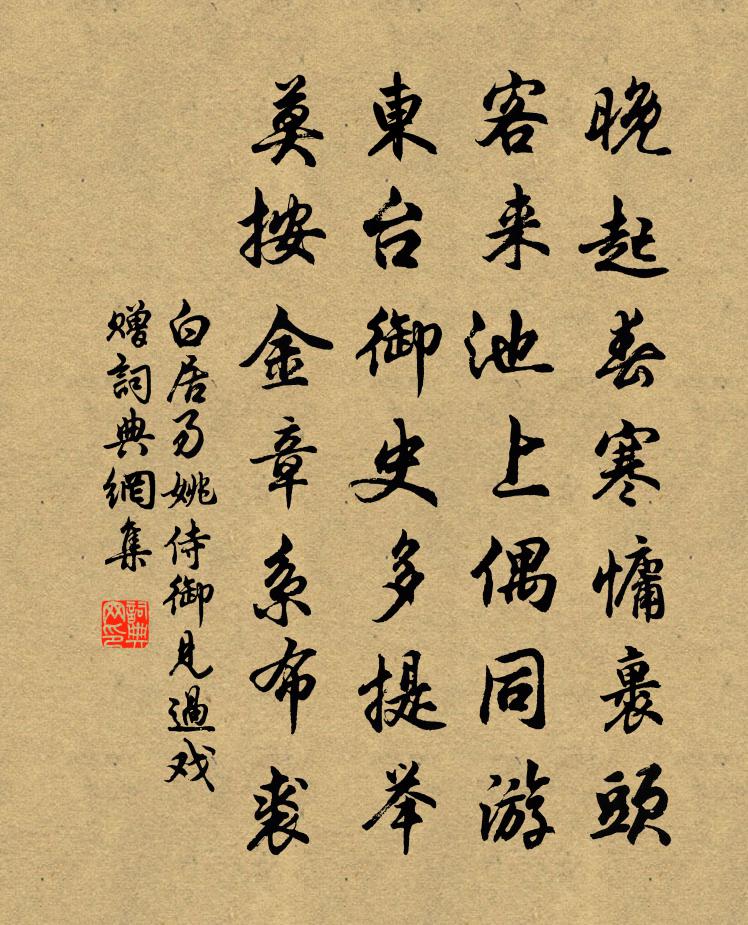 晚起春寒慵裹頭
客来池上偶同游
東台御史多提举
莫按金章系布裘
白居易姚侍御見過戏
赠詞典網集
詞典网印